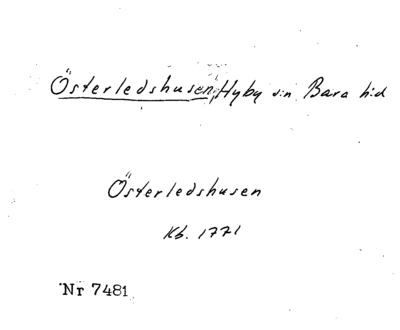 Österledshusen, Hyby s:n Bara h:d
Österledshusen
Kb. 1771
Nr 7481